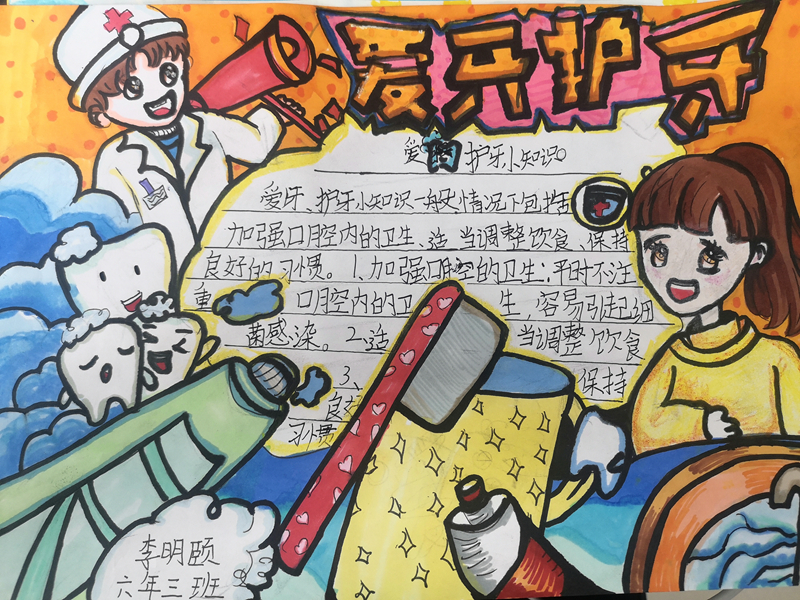 爱牙护牙
爱 护牙小知识。
爱牙、护牙小知识一般情况下包括
加强口腔内的卫生、适当调整饮食、保持
良好的习惯。1、加强口腔的卫生:平时不注
重 口腔内的卫 生,容易引起细
菌感染。2、适 当调整饮食
3、 保持
良好
习惯
李明颐
六年三班